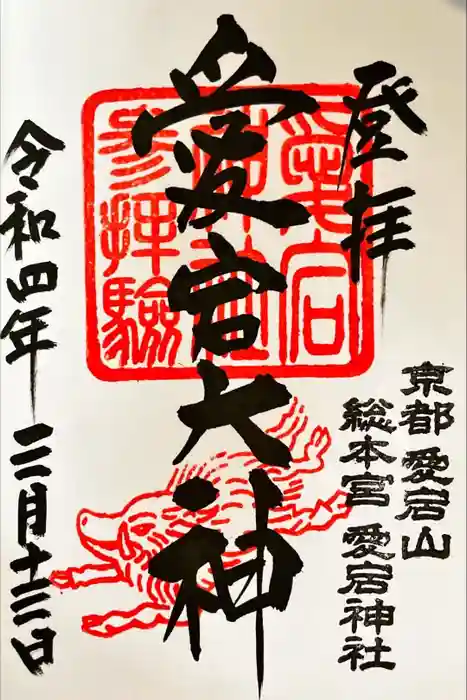 登拝
京都 愛宕山
総本宮 愛宕神社
愛宕
神社
参拝験
愛宕大神
令和四年 三月十三日